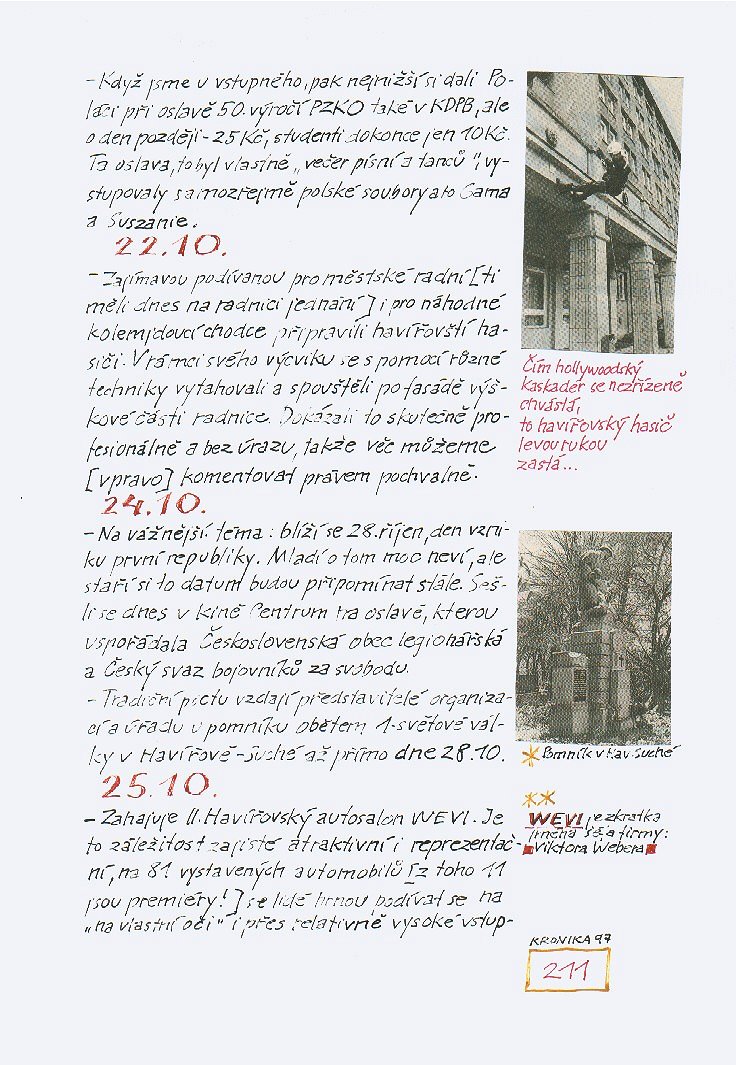 - Když jsme u vstupného, pak nejnižší si dali Po-
láci při oslavě 50. výročí PZKO také v KDPB, ale
o den později - 25 Kč, studenti dokonce jen 10 Kč.
Ta oslava, to byl vlastně „večer písní a tanců", vy-
stupovaly samozřejmě polské soubory a to Gama
a Suszanie.
22.10.
- Zajímavou podívanou pro městské radní [ti
měli dnes na radnici jednání] i pro náhodné
kolemjdoucí chodce připravili havířovští ha-
siči. V rámci svého výcviku se s pomocí různé
techniky vytahovali a spouštěli po fasádě výš-
kové části radnice. Dokázali to skutečně pro-
fesionálně a bez úrazu, takže věc můžeme
[vpravo] komentovat právem pochvalně.
24.10.
- Na vážnější téma: blíží se 28. říjen, den vzni-
ku první republiky. Mladí o tom moc neví, ale
staří si to datum budou připomínat stále. Seš-
li se dnes v kině Centrum na oslavě, kterou
uspořádala Československá obec legionářská
a Český svaz bojovníků za svobodu.
- Tradiční poctu vzdají představitelé organiza-
cí a úřadu u pomníku obětem 1. světové vál-
ky v Havířově - Suché až přímo dne 28.10.
25.10.
- Zahajuje II. Havířovský autosalon WEVI. Je
to záležitost zajisté atraktivní i reprezentač-
ní, na 81 vystavených automobilů [z toho 11
jsou premiéry!] se lidé hrnou podívat se na
„na vlastní oči" i přes relativně vysoké vstup-
Čím hollywoodský
kaskadér se nezřízeně
chvástá,
to havířovský hasič
levou rukou
zastá...
* Pomník v Hav. Suché
**
WEVI je zkratka
jména šéfa firmy:
Viktora Webera
KRONIKA 97
211